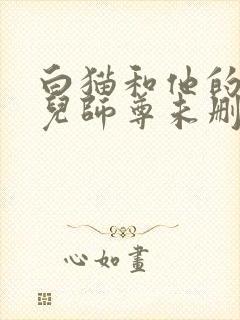 白猫和他的
兒師尊未刪
心如畫